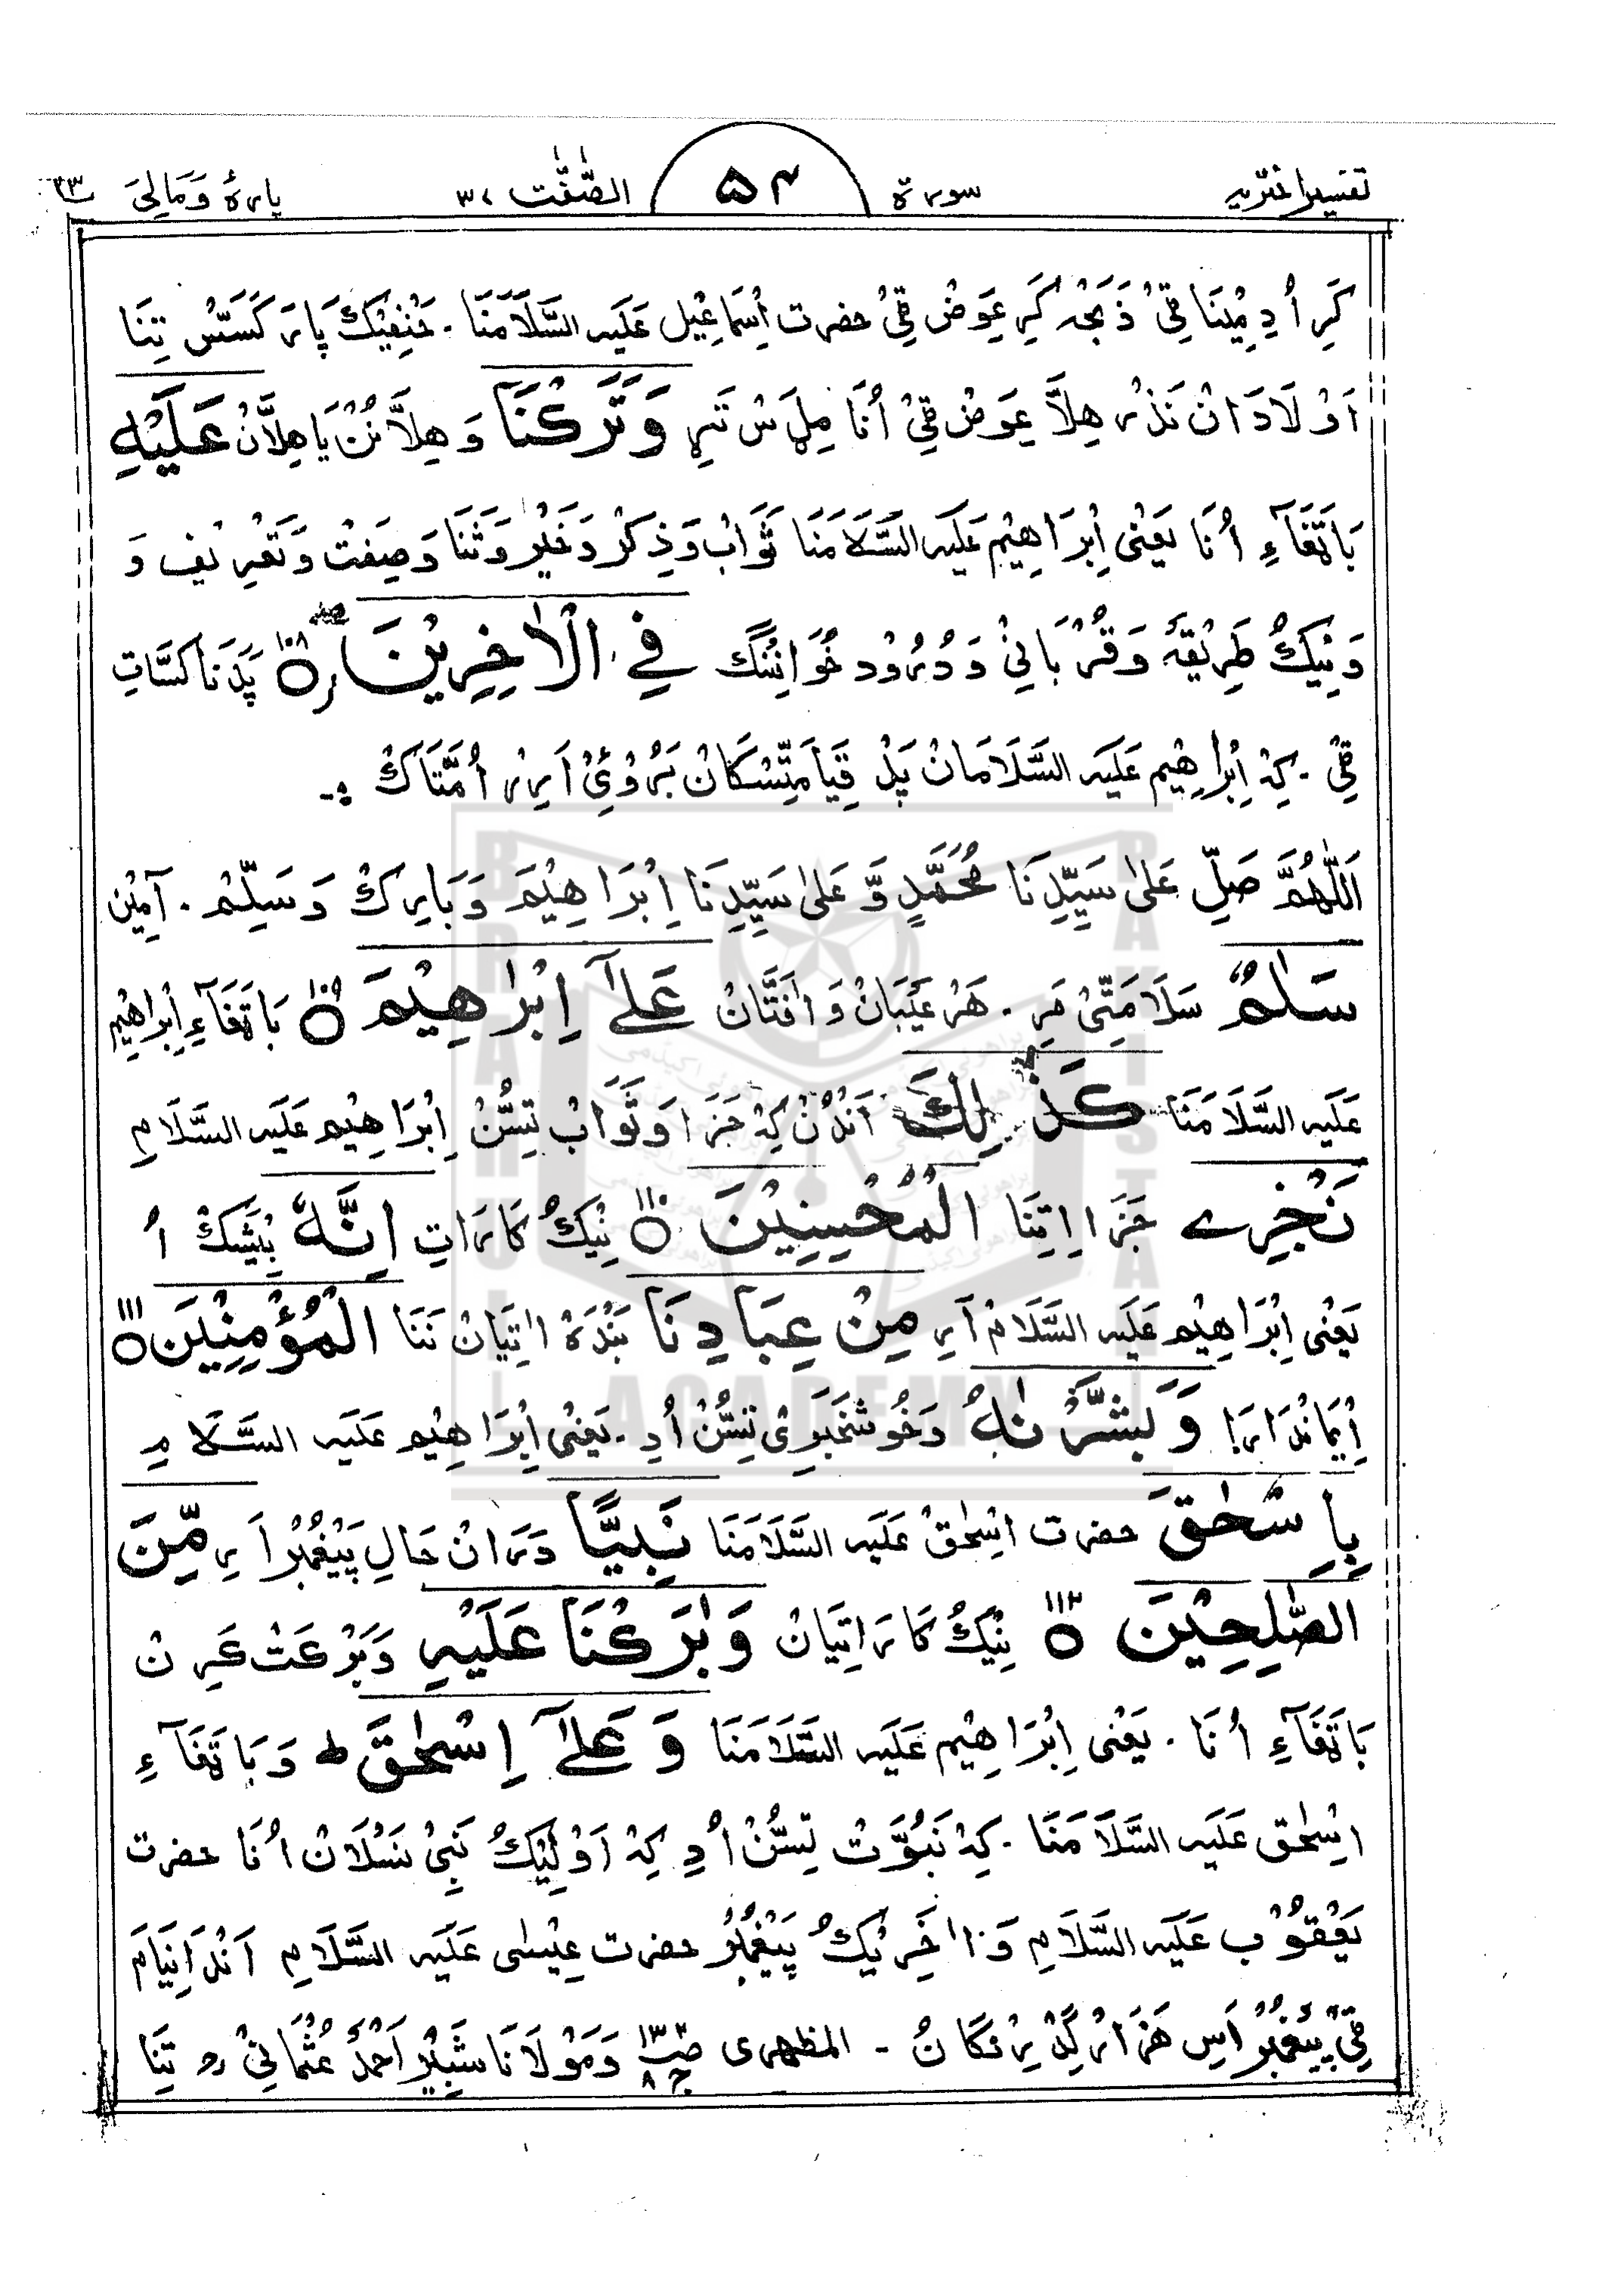 تفسیر اختریہ سورۃ ۵۴ الصّٰفّٰت ۳۷ پارۂ وَمَالِیَ ۲۳
کَرِ اُدِ مِیْنَا قِیْ ذَبَحْہ کَرِ عِوَضْ قِیْ حضرت اِسْمَاعِیْل عَلَیہ السَّلَامَنَا ۔ حَنْفِیْکْ پَارَ کَسَسْ تِنَا
اَوْلَادَانْ نَذْر ھِلاَّ عِوَضْ قِیْ اُنَا مِلِسْ تَرِ وَتَرَکْنَا وَ ھِلاَّنُنْ یَا ھِلاَّنْ عَلَیْہِ
بَاتَغَآءِ اُنَا یَعْنٰی اِبْرَاھِیْم عَلَیہ السَّلَامَنَا ثَوَابْ وَذِکْرْ وَخَیْرْ وَثَنَا وَصِفَتْ وَتَعْرِیْف وَ
وَنِیْکُ طَرِیْقَہ وَ قُرْبَانِیْ وَ دُرُوْد خُوَانِنْنَگ فِی الْاٰخِرِیْنَ ۱۰۸ پَدَنَا کَسَاتِ
قِیْ ۔ کِہ اِبْرَاھِیْم عَلَیہ السَّلَامَانْ پَدْ قِیَامَتِسْکَانْ بَرُوْئِیْ اَرِرْ اُمَّتَاکْ
اَللّٰھُمَّ صَلِّ عَلٰی سَیِّدِنَا مُحَمَّدٍ وَّ عَلٰی سَیِّدِنَا اِبْرَاھِیْمَ وَبَارِکْ وَسَلِّمْ ۔ آمِیْن
سَلٰمٌ سَلَامَتِیْ مَرِ ۔ ھَرْ عَیْبَانْ وَ اٰفَتَانْ عَلٰٓی اِبْرٰھِیْمَ ۱۰۹ بَاتَغَآءِ اِبْرَاھِیْم
عَلَیہ السَّلَامَنَا کَذٰلِکَ اَنْدُنْ کِہ جَزَا وَثَوَابْ تِسُّنْ اِبْرَاھِیْم عَلَیہ السَّلَامِ
نَجْزِی جَزَا اِتِنَا الْمُحْسِنِیْنَ ۱۱۰ نِیْکُ کَارَاتِ اِنَّہٗ بِیْشَکْ اُ
یَعْنٰی اِبْرَاھِیْم عَلَیہ السَّلَامْ اَرِ مِنْ عِبَادِنَا بَنْدَہْ اِتَیَانْ نَنَا الْمُؤْمِنِیْنَ ۱۱۱
اِیْمَانْدَارَا وَبَشَّرْنٰہُ وَخُوشْخَبَرِیْ تِسُّنْ اُدِ ۔ یَعْنٰی اِبْرَاھِیْم عَلَیہ السَّلَامِ
بِاِسْحٰقَ حضرت اِسْحٰقْ عَلَیہ السَّلَامَنَا نَبِیًّا دَرَانْ حَالِ پَیْغَمْبَرْ اَرِ مِّنَ
الصّٰلِحِیْنَ ۱۱۲ نِیْکُ کَارَاتِیَانْ وَبٰرَکْنَا عَلَیْہِ وَبَرْکَتْ کَرِنْ
بَاتَغَآءِ اُنَا ۔ یَعْنٰی اِبْرَاھِیْم عَلَیہ السَّلَامَنَا وَعَلٰٓی اِسْحٰقَ ط وَبَاتَغَآءِ
اِسْحٰق عَلَیہ السَّلَامَنَا ۔ کِہ نَبُوَّتْ تِسُّنْ اُدِ کِہ اَوْلِیْکُ نَبِیْ نَسْلَانْ اُنَا حضرت
یَعْقُوْب عَلَیہ السَّلَامِ وَ اٰخَرِیْکُ پَیْغَمْبَرْ حضرت عِیْسٰی عَلَیہ السَّلَامِ اَنْدَانِیَامَ
قِیْ پَیْغَمْبَرْ اَسِ ھَزَارْ گِدْرِنْگَانُ ۔ المظہری صـ۱۳۳ ج۸ وَمَوْلَانَا شَبِیْر اَحْمَدْ عُثْمَانِیْ رح تِنَا
BRAHUI ACADEMY PAKISTAN